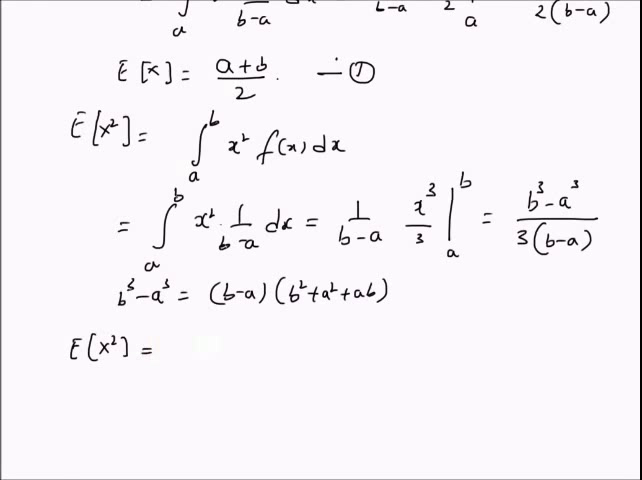 ∫ₐ b-a b-a 2 a 2(b-a)
E[x] = (a+b)/2. — ①
E[x²] = ∫ₐᵇ x² f(x) dx
= ∫ₐᵇ x² · 1/(b-a) dx = 1/(b-a) x³/3 |ₐᵇ = (b³-a³)/(3(b-a))
b³-a³ = (b-a)(b²+a²+ab)
E[x²] =